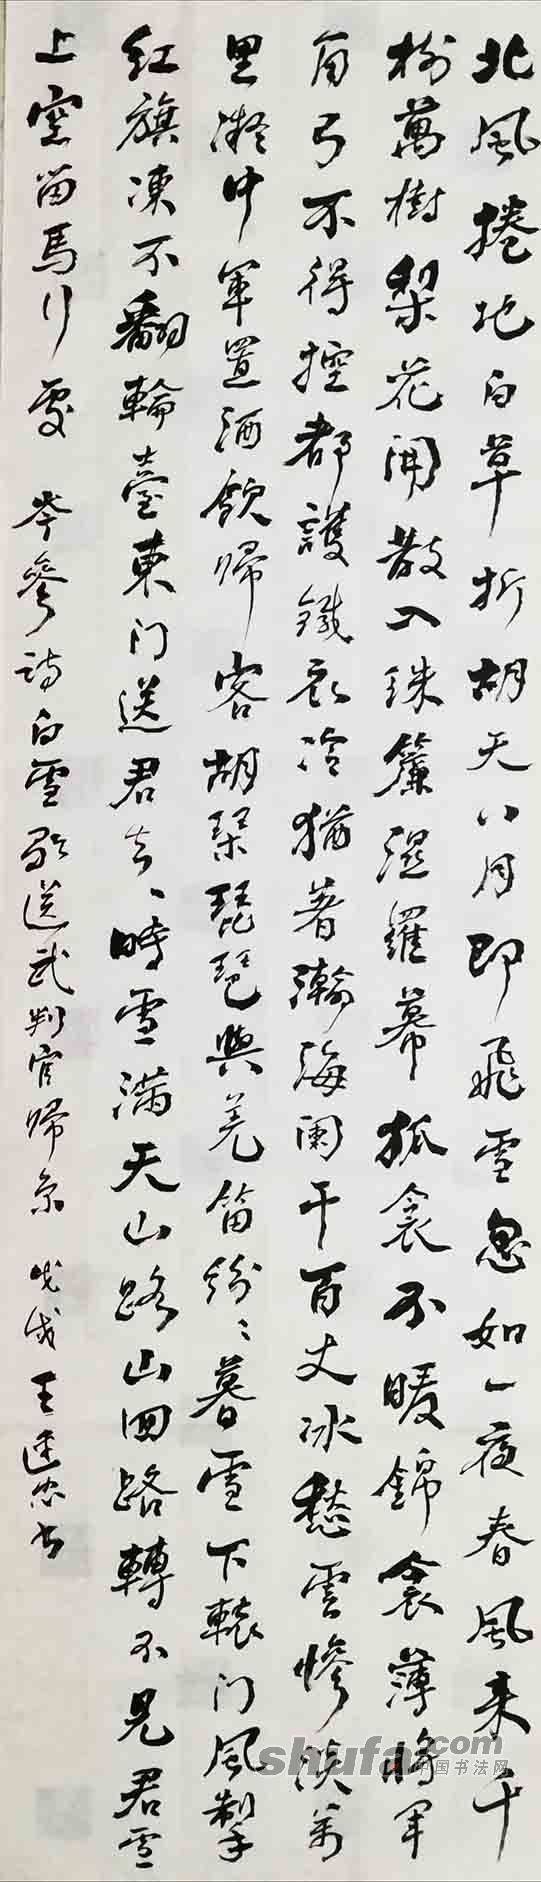 北風捲地白草折胡天八月即飛雪忽如一夜春風来千
樹萬樹梨花開散入珠簾濕羅幕狐裘不暖錦衾薄將軍
角弓不得控都護鐵衣冷猶著瀚海闌干百丈冰愁雲慘淡萬
里凝中軍置酒飲歸客胡琴琵琶與羌笛紛〻暮雪下轅门風掣
红旗凍不翻輪臺東门送君去〻時雪满天山路山回路轉不見君雪
上空留馬行處 岑參诗白雪歌送武判官歸京 戊戌王逢忠书
shufa.com
中国书法网